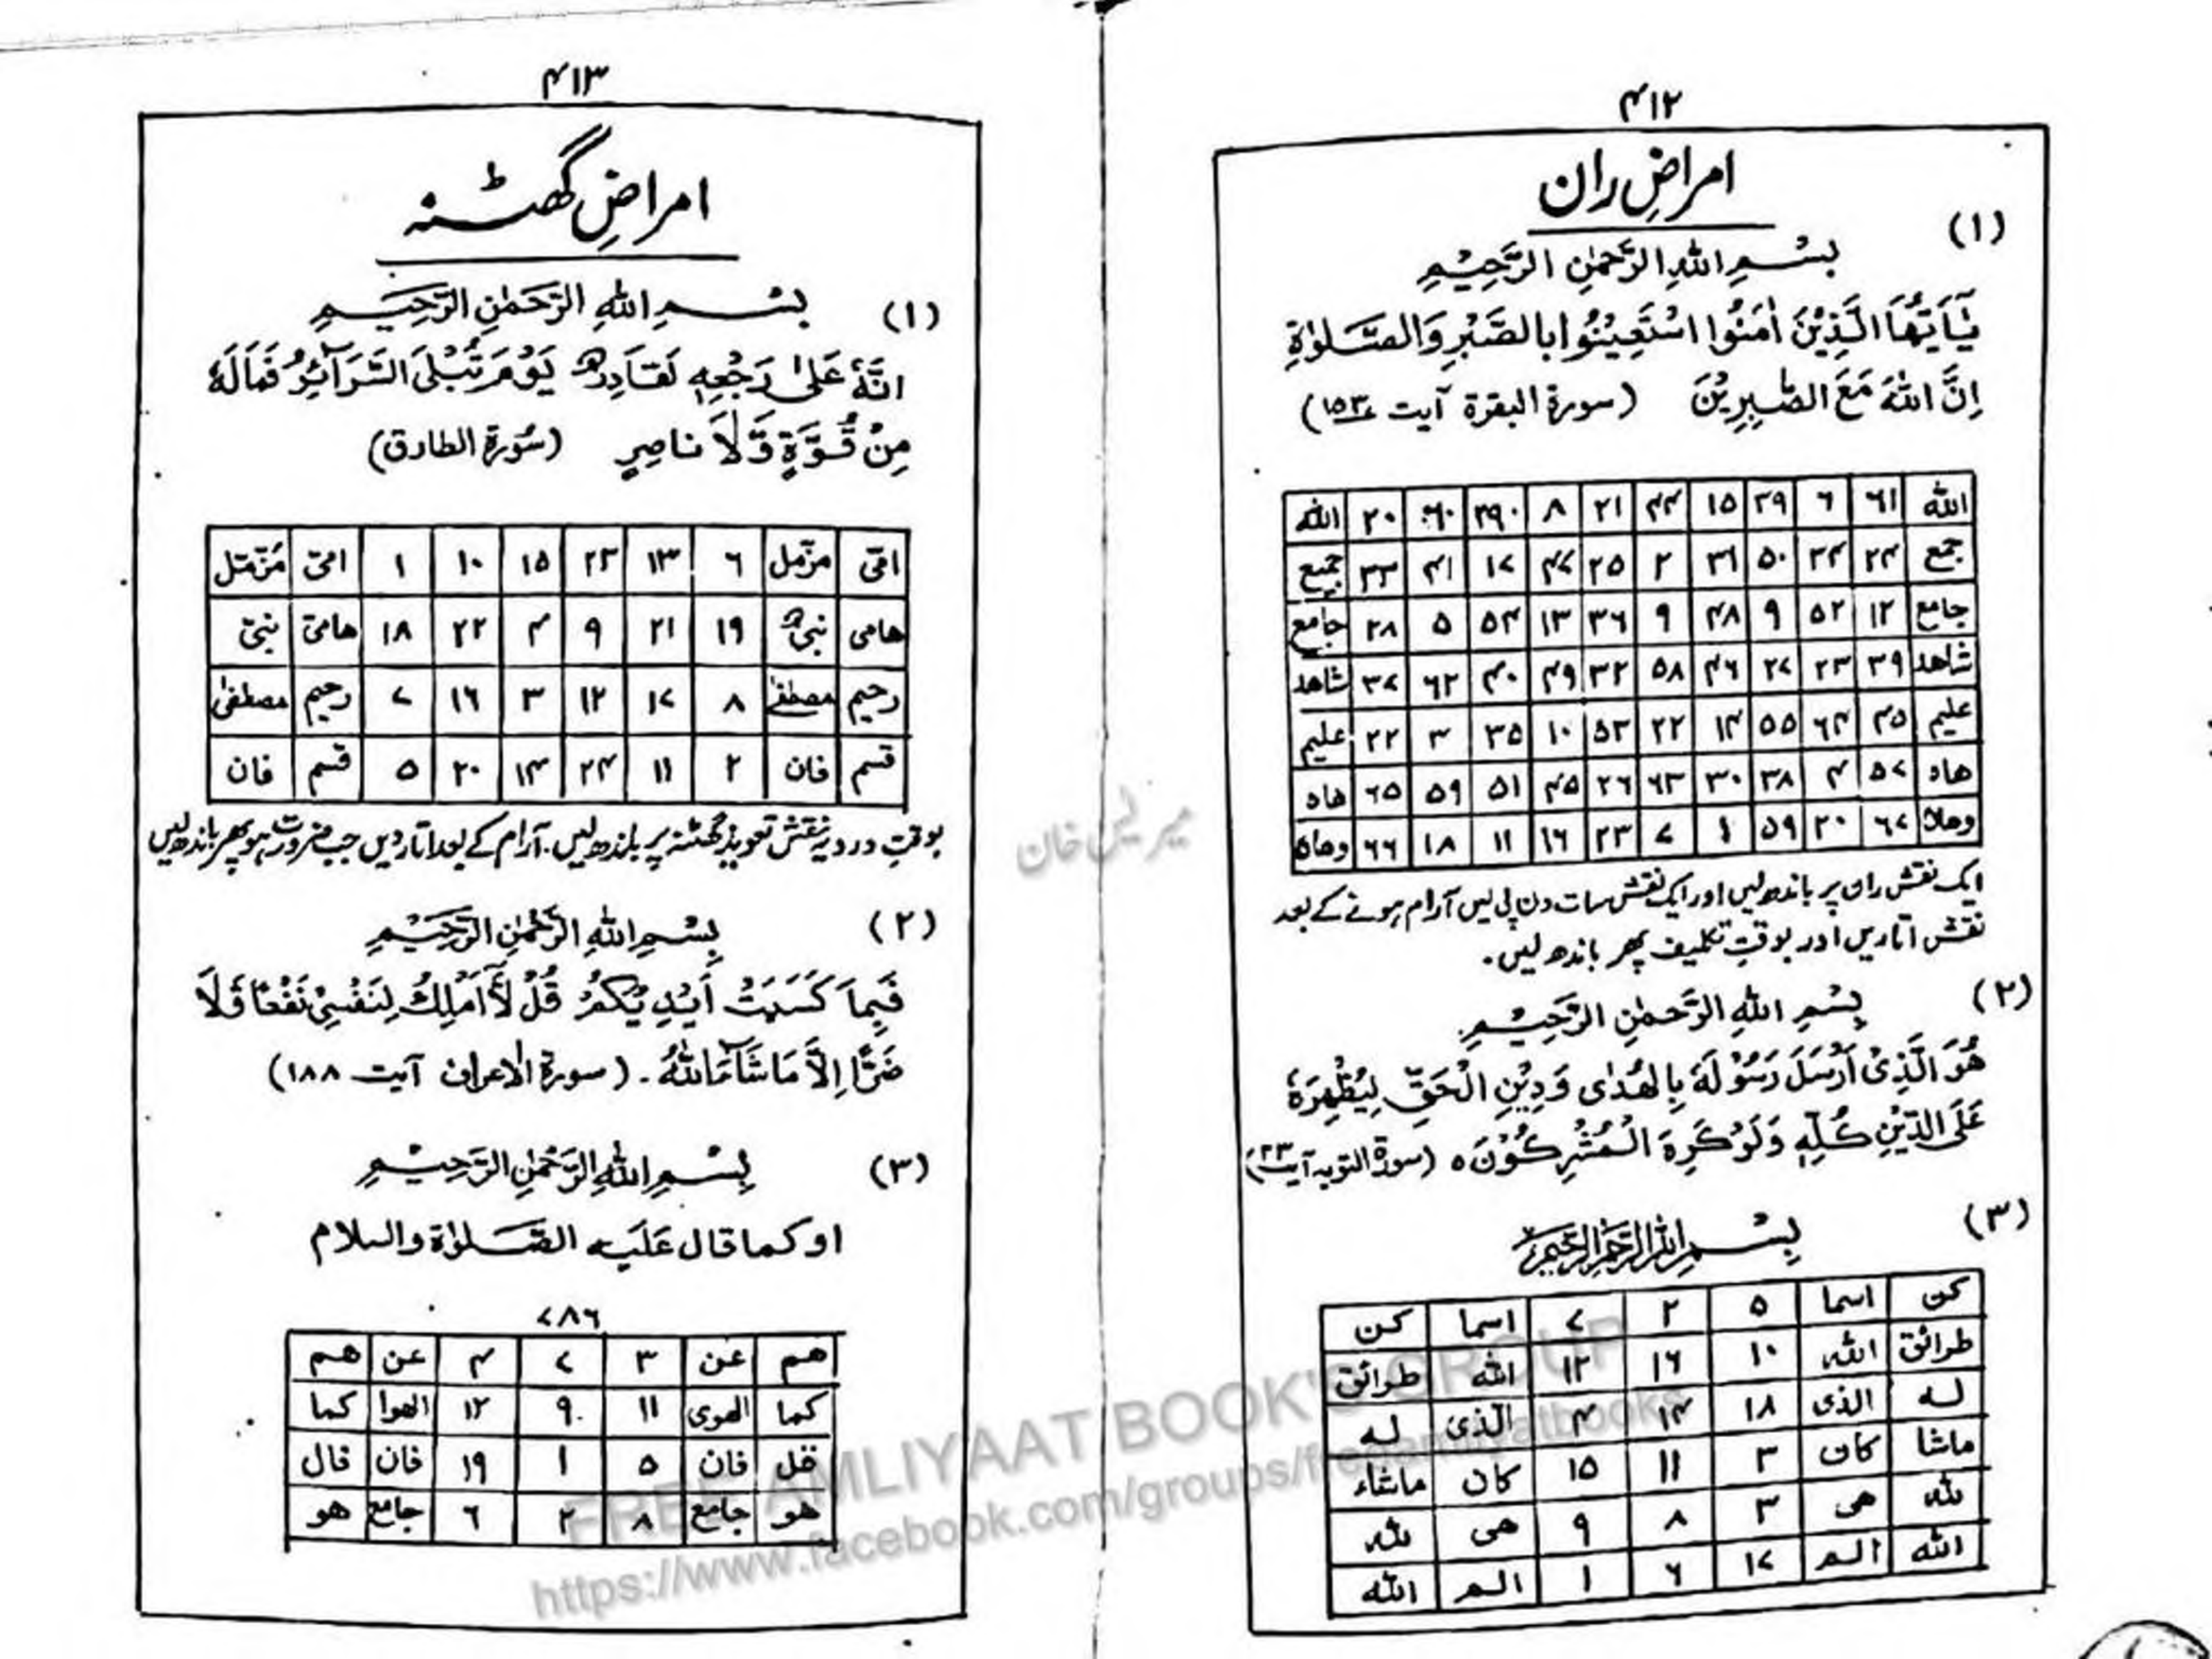 ۴۱۲
امراضِ ران
(۱)
بِسْمِ اللهِ الرَّحْمٰنِ الرَّحِيْمِ
يٰٓاَيُّهَا الَّذِيْنَ اٰمَنُوا اسْتَعِيْنُوْا بِالصَّبْرِ وَالصَّلٰوةِ
اِنَّ اللهَ مَعَ الصّٰبِرِيْنَ (سورة البقرة آیت ۱۵۳)
الله ۶۱ ۶ ۲۹ ۱۵ ۴۴ ۲۱ ۸ ۲۹۰ ۶۰ ۲۰ الله
جمع ۲۴ ۳۴ ۵۰ ۳۱ ۲ ۲۵ ۴۷ ۱۷ ۴۱ ۳۳ جمیع
جامع ۱۲ ۵۲ ۹ ۴۸ ۹ ۳۶ ۱۳ ۵۴ ۵ ۲۸ جامع
شاهد ۳۹ ۲۳ ۲۷ ۴۶ ۵۸ ۳۲ ۴۹ ۴۰ ۶۲ ۳۷ شاهد
علیم ۴۵ ۶۴ ۵۵ ۱۴ ۲۲ ۵۳ ۱۰ ۳۵ ۳ ۲۲ علیم
هاد ۵۷ ۴ ۳۸ ۳۰ ۶۳ ۲۶ ۴۵ ۵۱ ۵۹ ۶۵ هاد
وهاه ۶۷ ۲۰ ۵۹ ۱ ۷ ۲۳ ۱۶ ۱۱ ۱۸ ۶۶ وهاه
ایک نقش ران پر باندھ لیں اور ایک نقش سات دن پی لیں آرام ہونے کے بعد
نقش اتاریں اور بوقتِ تکلیف پھر باندھ لیں۔
(۲)
بِسْمِ اللهِ الرَّحْمٰنِ الرَّحِيْمِ
هُوَ الَّذِيْ اَرْسَلَ رَسُوْلَهٗ بِالْهُدٰى وَدِيْنِ الْحَقِّ لِيُظْهِرَهٗ
عَلَى الدِّيْنِ كُلِّهٖ وَلَوْ كَرِهَ الْمُشْرِكُوْنَ ٥ (سورة التوبه آیت ۲۳)
(۳)
بِسْمِ اللهِ الرَّحْمٰنِ الرَّحِيْمِ
كن اسما ۵ ۲ ۷ اسما كن
طرائق الله ۱۰ ۱۶ ۱۲ الله طرائق
له الذی ۱۸ ۱۴ ۴ الذی له
ماشا كان ۳ ۱۱ ۱۵ كان ماشاء
لله هی ۳ ۸ ۹ هی لله
الله الم ۱۷ ۶ ۱ الم الله
۴۱۳
امراضِ گھٹنہ
(۱) بِسْمِ اللهِ الرَّحْمٰنِ الرَّحِيْمِ
اِنَّهٗ عَلٰى رَجْعِهٖ لَقَادِرٌ يَوْمَ تُبْلَى السَّرَآئِرُ فَمَا لَهٗ
مِنْ قُوَّةٍ وَّلَا نَاصِرٍ (سُورة الطارق)
امّی ۶ مزّمل ۱۳ ۲۳ ۱۵ ۱۰ ۱ امّی مزّمّل
هامی نبیٌّ ۱۹ ۲۱ ۹ ۴ ۲۲ ۱۸ هامیّ نبیّ
رحیم مصطفےٰ ۸ ۱۷ ۱۲ ۳ ۱۶ ۷ رحیم مصطفیٰ
قسم فان ۲ ۱۱ ۲۴ ۱۴ ۲۰ ۵ قسم فان
بوقتِ درد یہ نقش تعویذ گھٹنہ پر باندھ لیں۔ آرام کے بعد اتار دیں جب ضرورت ہو پھر باندھ لیں
(۲) بِسْمِ اللهِ الرَّحْمٰنِ الرَّحِيْمِ
فَبِمَا كَسَبَتْ اَيْدِيْكُمْ قُلْ لَّآ اَمْلِكُ لِنَفْسِيْ نَفْعًا وَّلَا
ضَرًّا اِلَّا مَا شَآءَ اللهُ۔ (سورة الاعراف آیت ۱۸۸)
(۳) بِسْمِ اللهِ الرَّحْمٰنِ الرَّحِيْمِ
او كما قال عَلَيه الصَّلوٰة والسلام
۷۸۶
هم عن ۳ ۷ ۴ عن هم
كما الهوى ۱۱ ۹ ۱۲ الهوا كما
قل فان ۵ ۱ ۱۹ فان قال
هو جامع ۸ ۲ ۶ جامع هو
FREE AMLIYAAT BOOK'S GROUP
https://www.facebook.com/groups/freeamliyatbooks